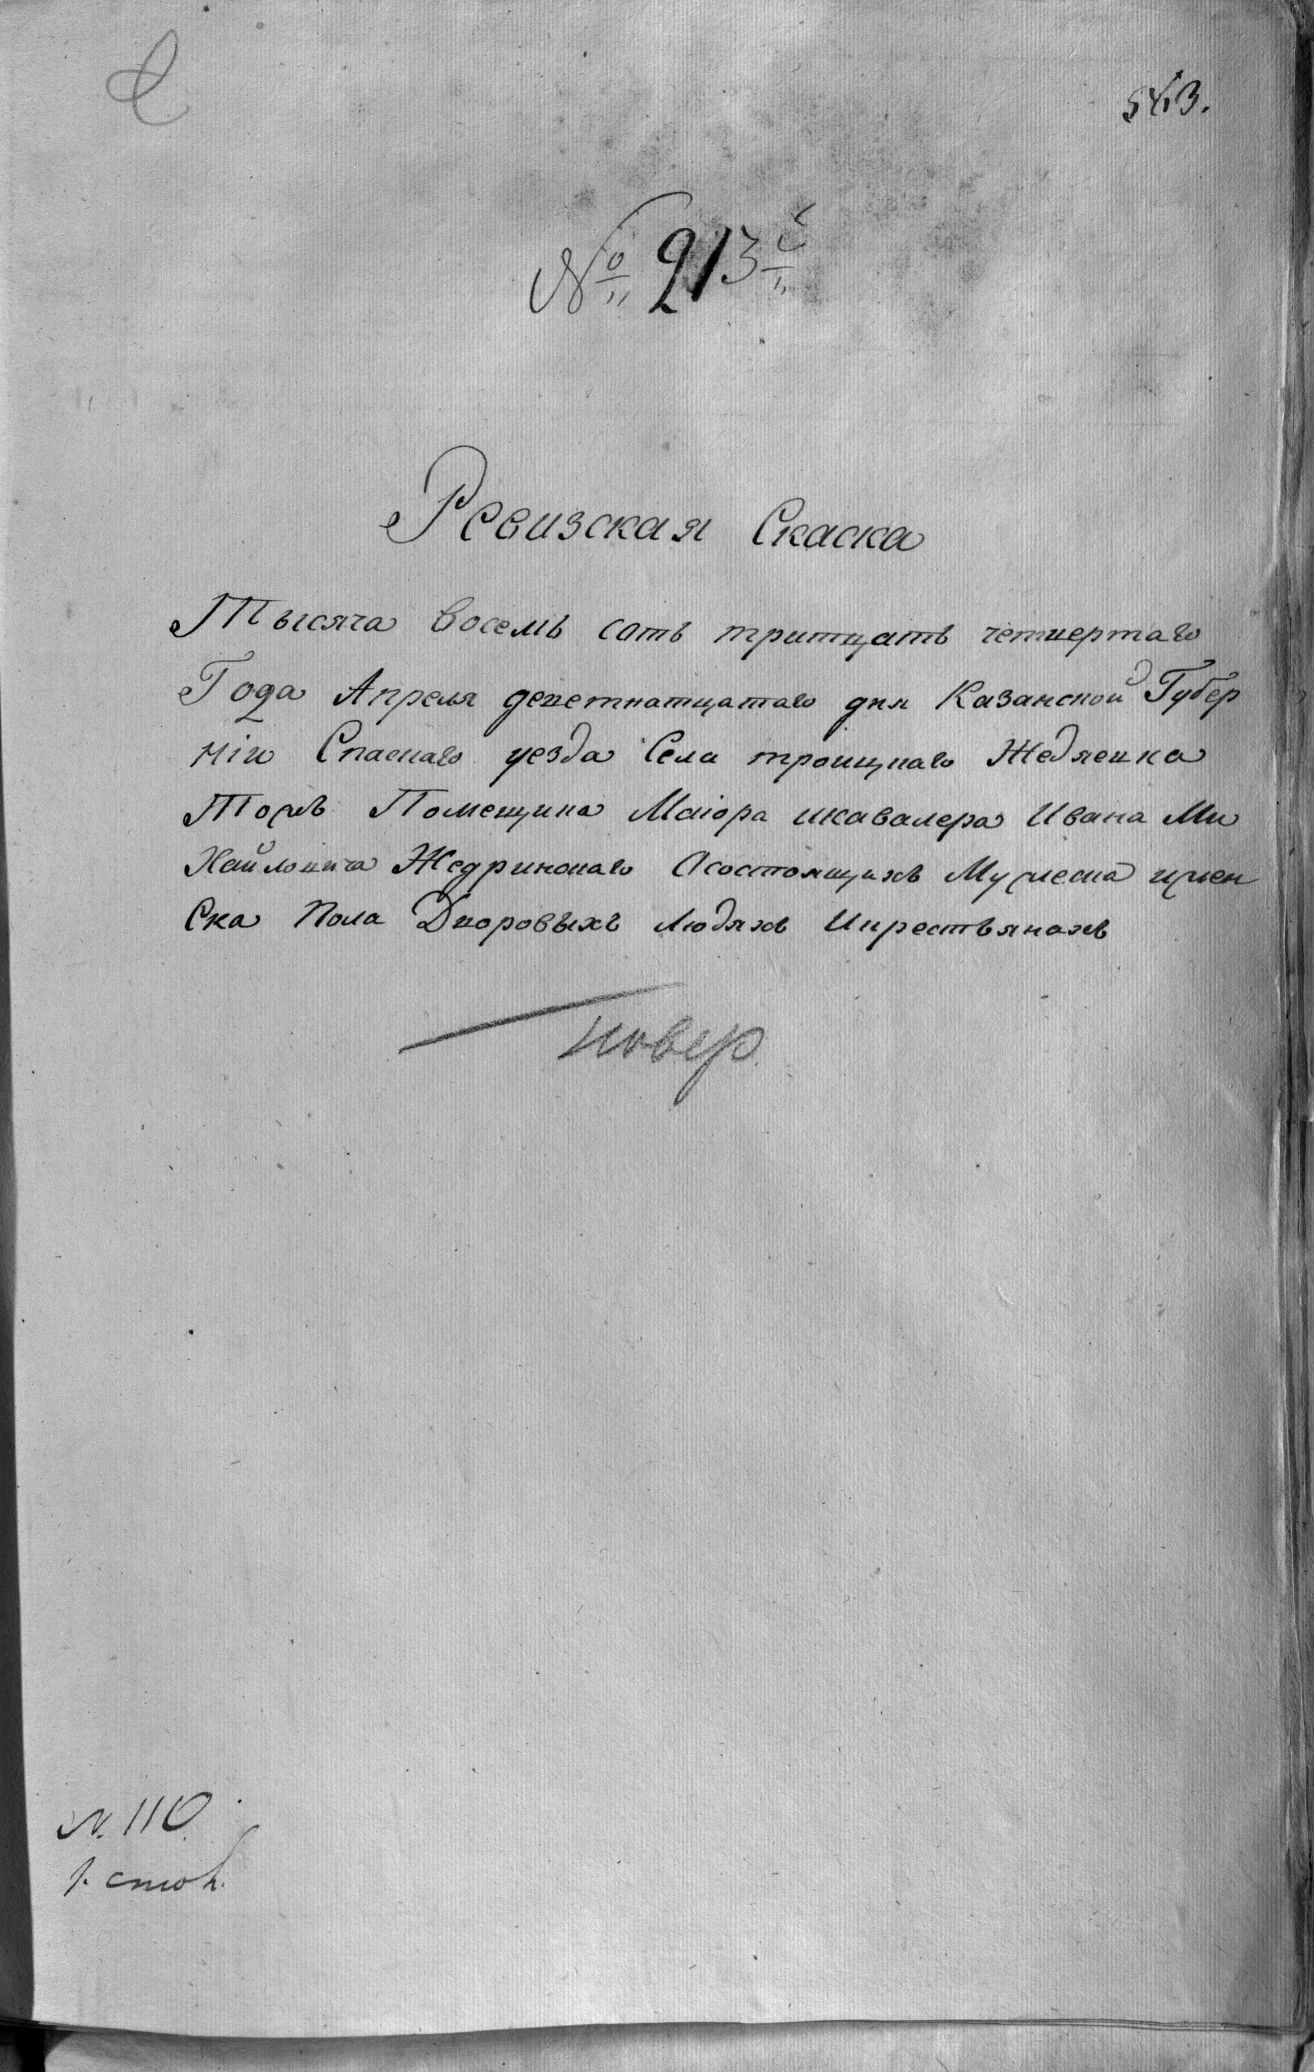 543.
№ 213й
Ревизская Скаска
Тысяча восемь сотъ тритцать четвертаго
Года Апреля деветнатцатаго дня Казанской Губер
ніи Спаскаго уезда Села троицкаго Жедяевка
Тожъ Помещика Маіора икавалера Ивана Ми
хайловича Жедринскаго Асостоящихъ Мужеска ижен
Ска Пола Дворовыхъ Людяхъ Икрестьянахъ
повер.
N. 110.